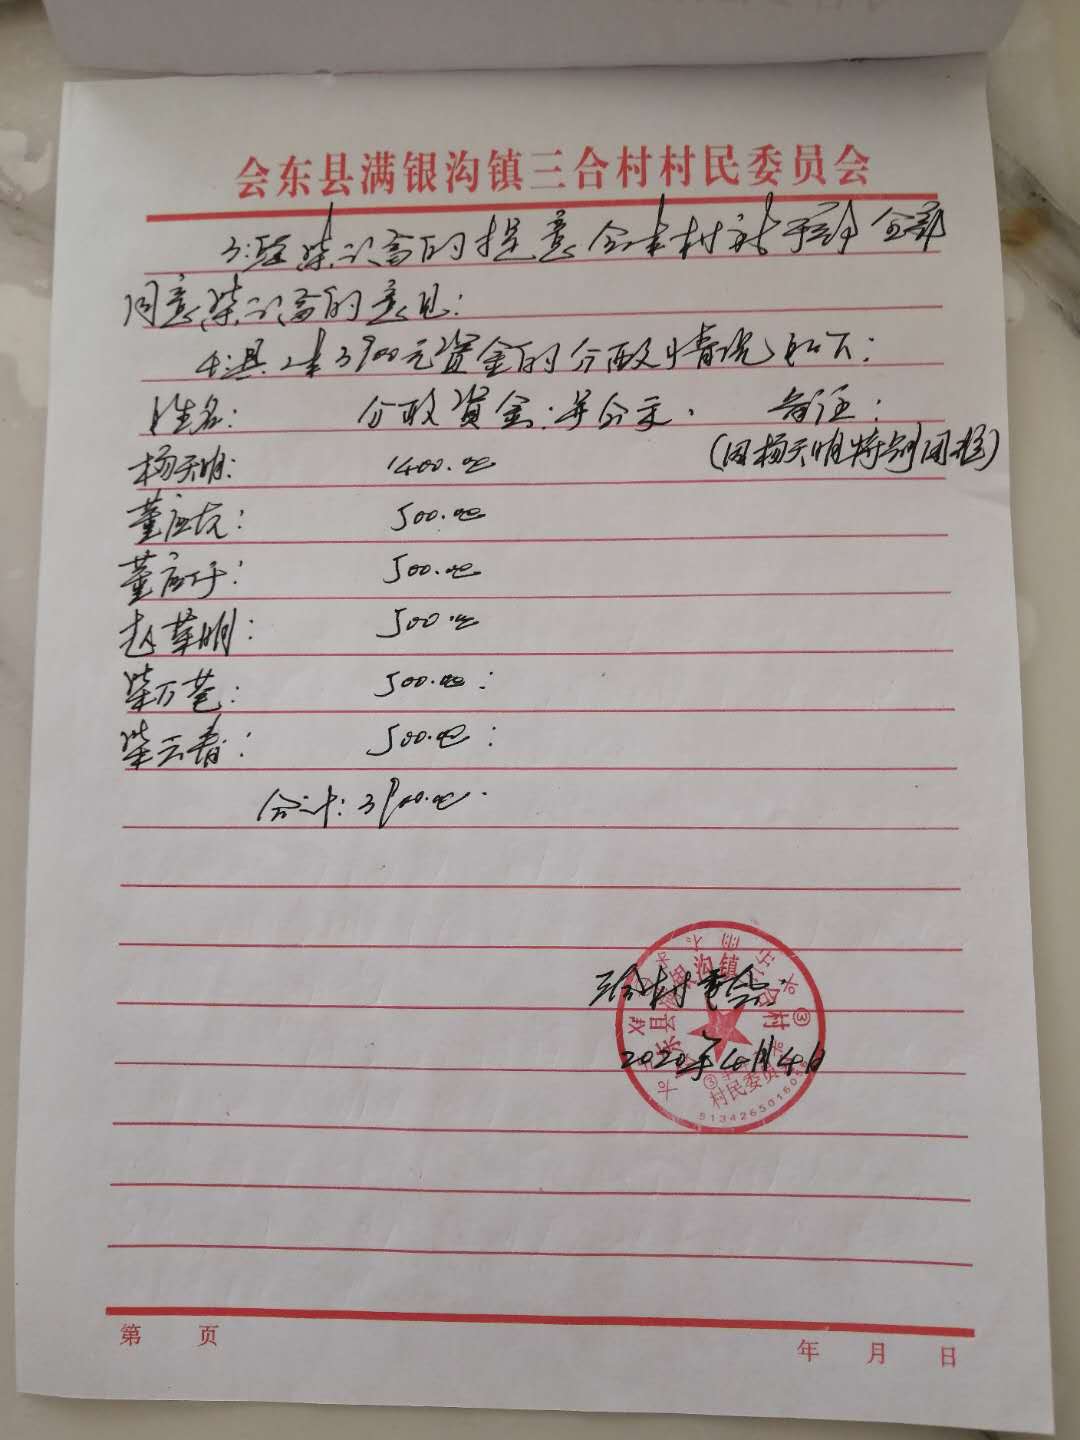 会东县满银沟镇三合村村民委员会
3:经柴以富的提意会
同意柴以富的意见:
4:县上来3900元资金的分配情况如下:
姓名: 分配资金:并公示. 备注:
杨天明: 1400.00 (因杨天明特别困难)
董应: 500.00
董应: 500.00
赵荣明: 500.00
柴万: 500.00:
柴云春: 500.00:
合计: 3900.00.
三合村委会:
2020年4月4日
村民委员会
5134265016
第 页 年 月 日